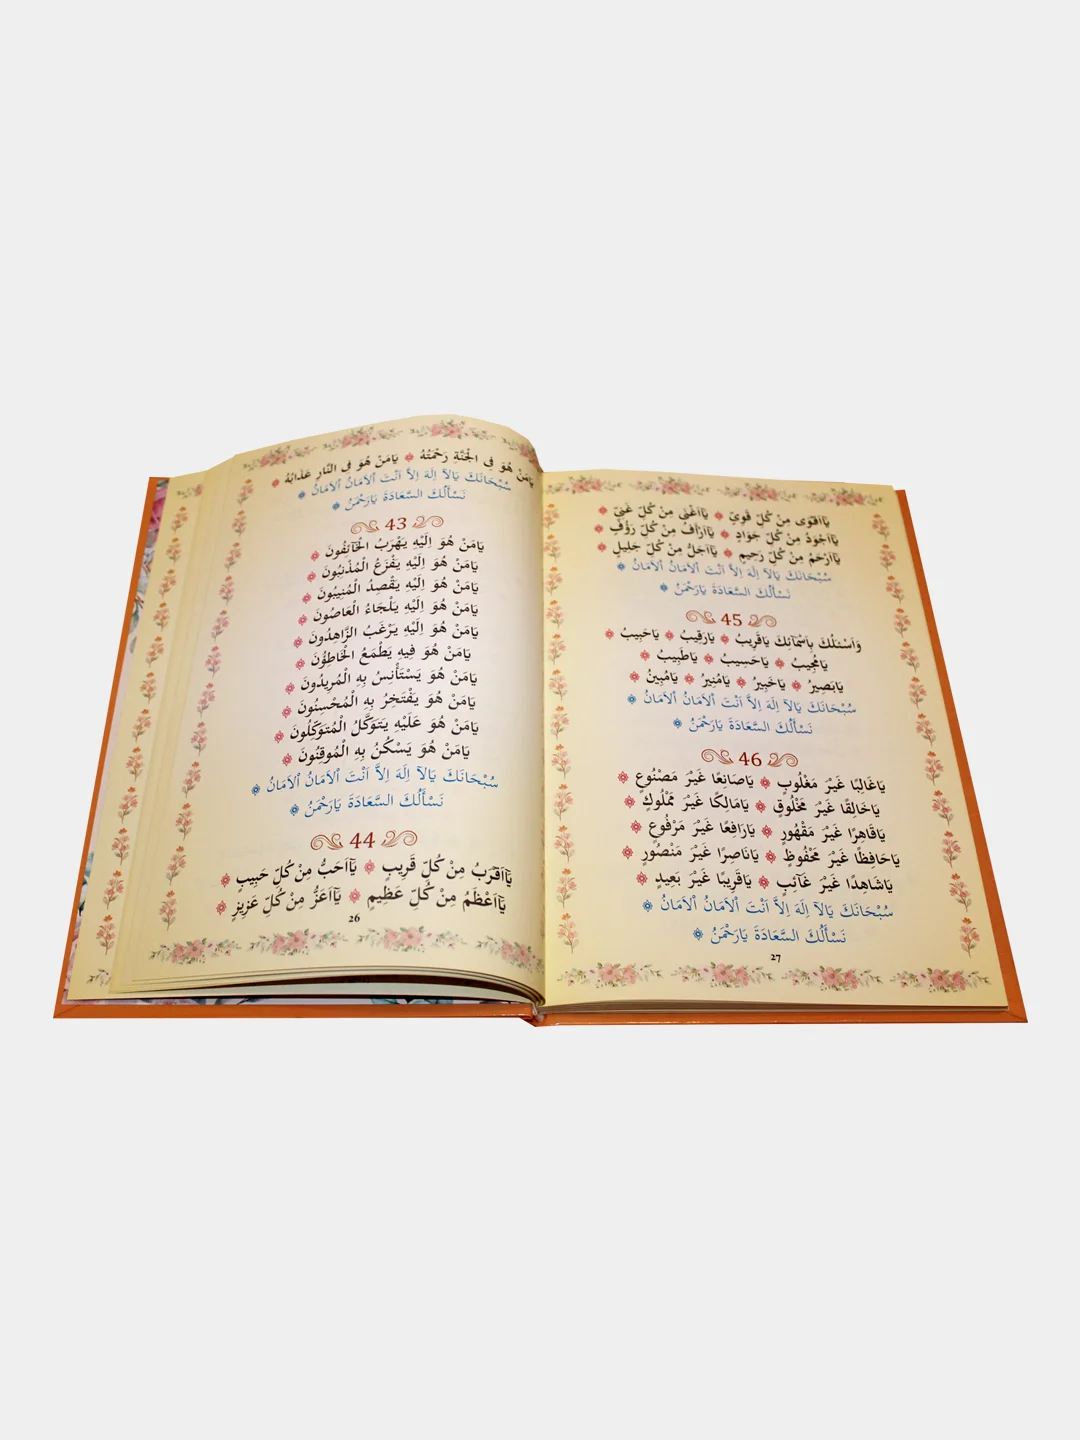 يَامَنْ هُوَ فِى الْجَنَّةِ رَحْمَتُهُ ۞ يَامَنْ هُوَ فِى النَّارِ عَذَابُهُ ۞
سُبْحَانَكَ يَالَآ اِلَهَ اِلاَّ اَنْتَ اْلاَمَانُ اْلاَمَانُ ۞
نَسْأَلُكَ السَّعَادَةَ يَارَحْمَنُ ۞
43
يَامَنْ هُوَ اِلَيْهِ يَهْرَبُ الْخَآئِفُونَ ۞
يَامَنْ هُوَ اِلَيْهِ يَفْزَعُ الْمُذْنِبُونَ ۞
يَامَنْ هُوَ اِلَيْهِ يَقْصِدُ الْمُنِيبُونَ ۞
يَامَنْ هُوَ اِلَيْهِ يَلْجَاءُ الْعَاصُونَ ۞
يَامَنْ هُوَ اِلَيْهِ يَرْغَبُ الزَّاهِدُونَ ۞
يَامَنْ هُوَ فِيهِ يَطْمَعُ الْخَاطِؤُنَ ۞
يَامَنْ هُوَ يَسْتَأْنِسُ بِهِ الْمُرِيدُونَ ۞
يَامَنْ هُوَ يَفْتَخِرُ بِهِ الْمُحْسِنُونَ ۞
يَامَنْ هُوَ عَلَيْهِ يَتَوَكَّلُ الْمُتَوَكِّلُونَ ۞
يَامَنْ هُوَ يَسْكُنُ بِهِ الْمُوقِنُونَ ۞
سُبْحَانَكَ يَالَآ اِلَهَ اِلاَّ اَنْتَ اْلاَمَانُ اْلاَمَانُ ۞
نَسْأَلُكَ السَّعَادَةَ يَارَحْمَنُ ۞
44
يَآاَقْرَبُ مِنْ كُلِّ قَرِيبٍ ۞ يَآاَحَبُّ مِنْ كُلِّ حَبِيبٍ ۞
يَآاَعْظَمُ مِنْ كُلِّ عَظِيمٍ ۞ يَآاَعَزُّ مِنْ كُلِّ عَزِيزٍ ۞
26
يَآاَقْوَى مِنْ كُلِّ قَوِيٍّ ۞ يَآاَغْنَى مِنْ كُلِّ غَنِيٍّ ۞
يَآاَجْوَدُ مِنْ كُلِّ جَوَادٍ ۞ يَآاَرْاَفُ مِنْ كُلِّ رَؤُفٍ ۞
يَآاَرْحَمُ مِنْ كُلِّ رَحِيمٍ ۞ يَآاَجَلُّ مِنْ كُلِّ جَلِيلٍ ۞
سُبْحَانَكَ يَالَآ اِلَهَ اِلاَّ اَنْتَ اْلاَمَانُ اْلاَمَانُ ۞
نَسْأَلُكَ السَّعَادَةَ يَارَحْمَنُ ۞
45
وَاَسْئَلُكَ بِاَسْمَآئِكَ يَاقَرِيبُ ۞ يَارَقِيبُ ۞ يَاحَبِيبُ ۞
يَامُجِيبُ ۞ يَاحَسِيبُ ۞ يَاطَبِيبُ ۞
يَابَصِيرُ ۞ يَاخَبِيرُ ۞ يَامُنِيرُ ۞ يَامُبِينُ ۞
سُبْحَانَكَ يَالَآ اِلَهَ اِلاَّ اَنْتَ اْلاَمَانُ اْلاَمَانُ ۞
نَسْأَلُكَ السَّعَادَةَ يَارَحْمَنُ ۞
46
يَاغَالِبًا غَيْرَ مَغْلُوبٍ ۞ يَاصَانِعًا غَيْرَ مَصْنُوعٍ ۞
يَاخَالِقًا غَيْرَ مَخْلُوقٍ ۞ يَامَالِكًا غَيْرَ مَمْلُوكٍ ۞
يَاقَاهِرًا غَيْرَ مَقْهُورٍ ۞ يَارَافِعًا غَيْرَ مَرْفُوعٍ ۞
يَاحَافِظًا غَيْرَ مَحْفُوظٍ ۞ يَانَاصِرًا غَيْرَ مَنْصُورٍ ۞
يَاشَاهِدًا غَيْرَ غَآئِبٍ ۞ يَاقَرِيبًا غَيْرَ بَعِيدٍ ۞
سُبْحَانَكَ يَالَآ اِلَهَ اِلاَّ اَنْتَ اْلاَمَانُ اْلاَمَانُ ۞
نَسْأَلُكَ السَّعَادَةَ يَارَحْمَنُ ۞
27